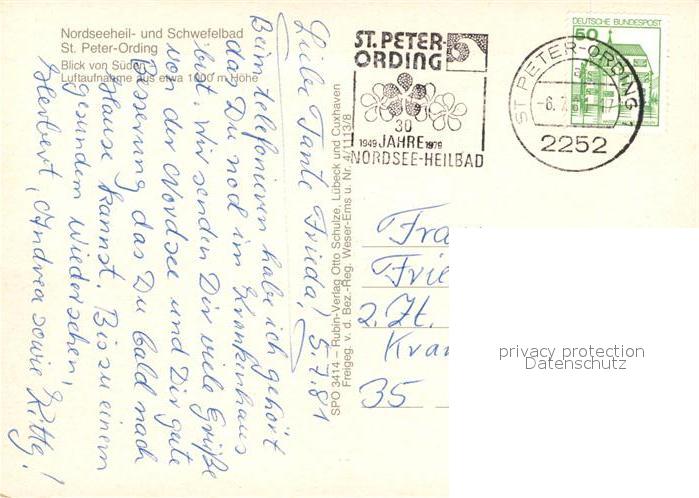 Nordseeheil- und Schwefelbad
St. Peter-Ording
Blick von Süden
Luftaufnahme aus etwa 1000 m Höhe
Liebe Tante Frieda! 5.7.81
Beim telefonieren habe ich gehört
das Du noch im Krankenhaus
bist. Wir senden Dir viele Grüße
von der Nordsee und Dir gute
Besserung das Du bald nach
Hause kannst. Bis zu einem
gesundem Wiedersehen,
Herbert, Andrea sowie Kitty!
SPO 3414 – Rubin-Verlag Otto Schulze, Lübeck und Cuxhaven
Freigeg. v. d. Bez.-Reg. Weser-Ems u. Nr. 4/1113/8
ST. PETER-
ORDING
30
1949 JAHRE 1979
NORDSEE-HEILBAD
ST PETER-ORDING 1
2252
DEUTSCHE BUNDESPOST
50
Fra
Frie
z. Zt.
Kran
35
privacy protection
Datenschutz